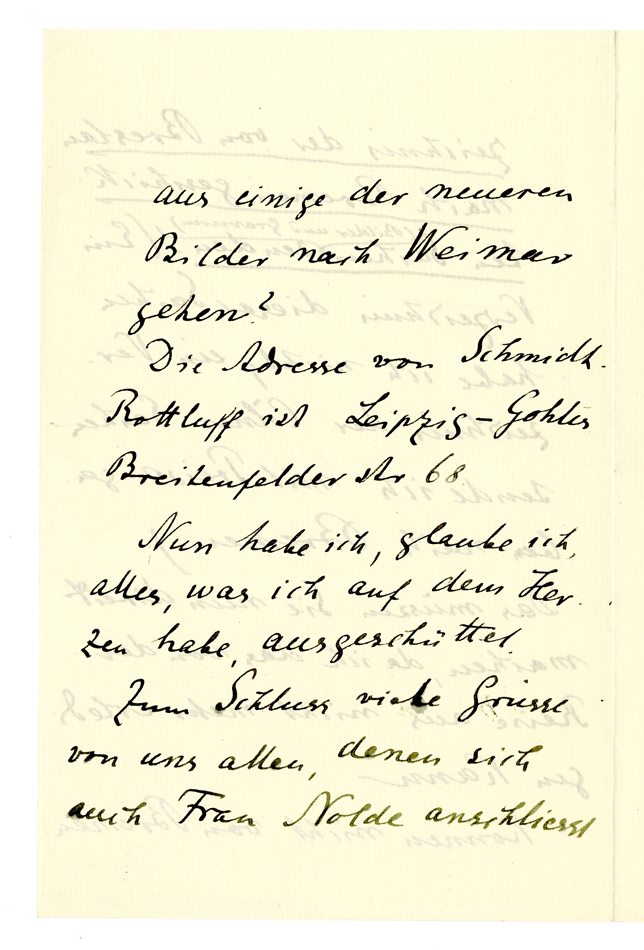 aus einige der neueren
Bilder nach Weimar
gehen?
Die Adresse von Schmidt-
Rottluff ist Leipzig-Gohlis
Breitenfelder str 68
Nun habe ich, glaube ich,
alles, was ich auf dem Her-
zen habe, ausgeschüttet.
Zum Schluss viele Grüsse
von uns allen, denen sich
auch Frau Nolde anschliesst